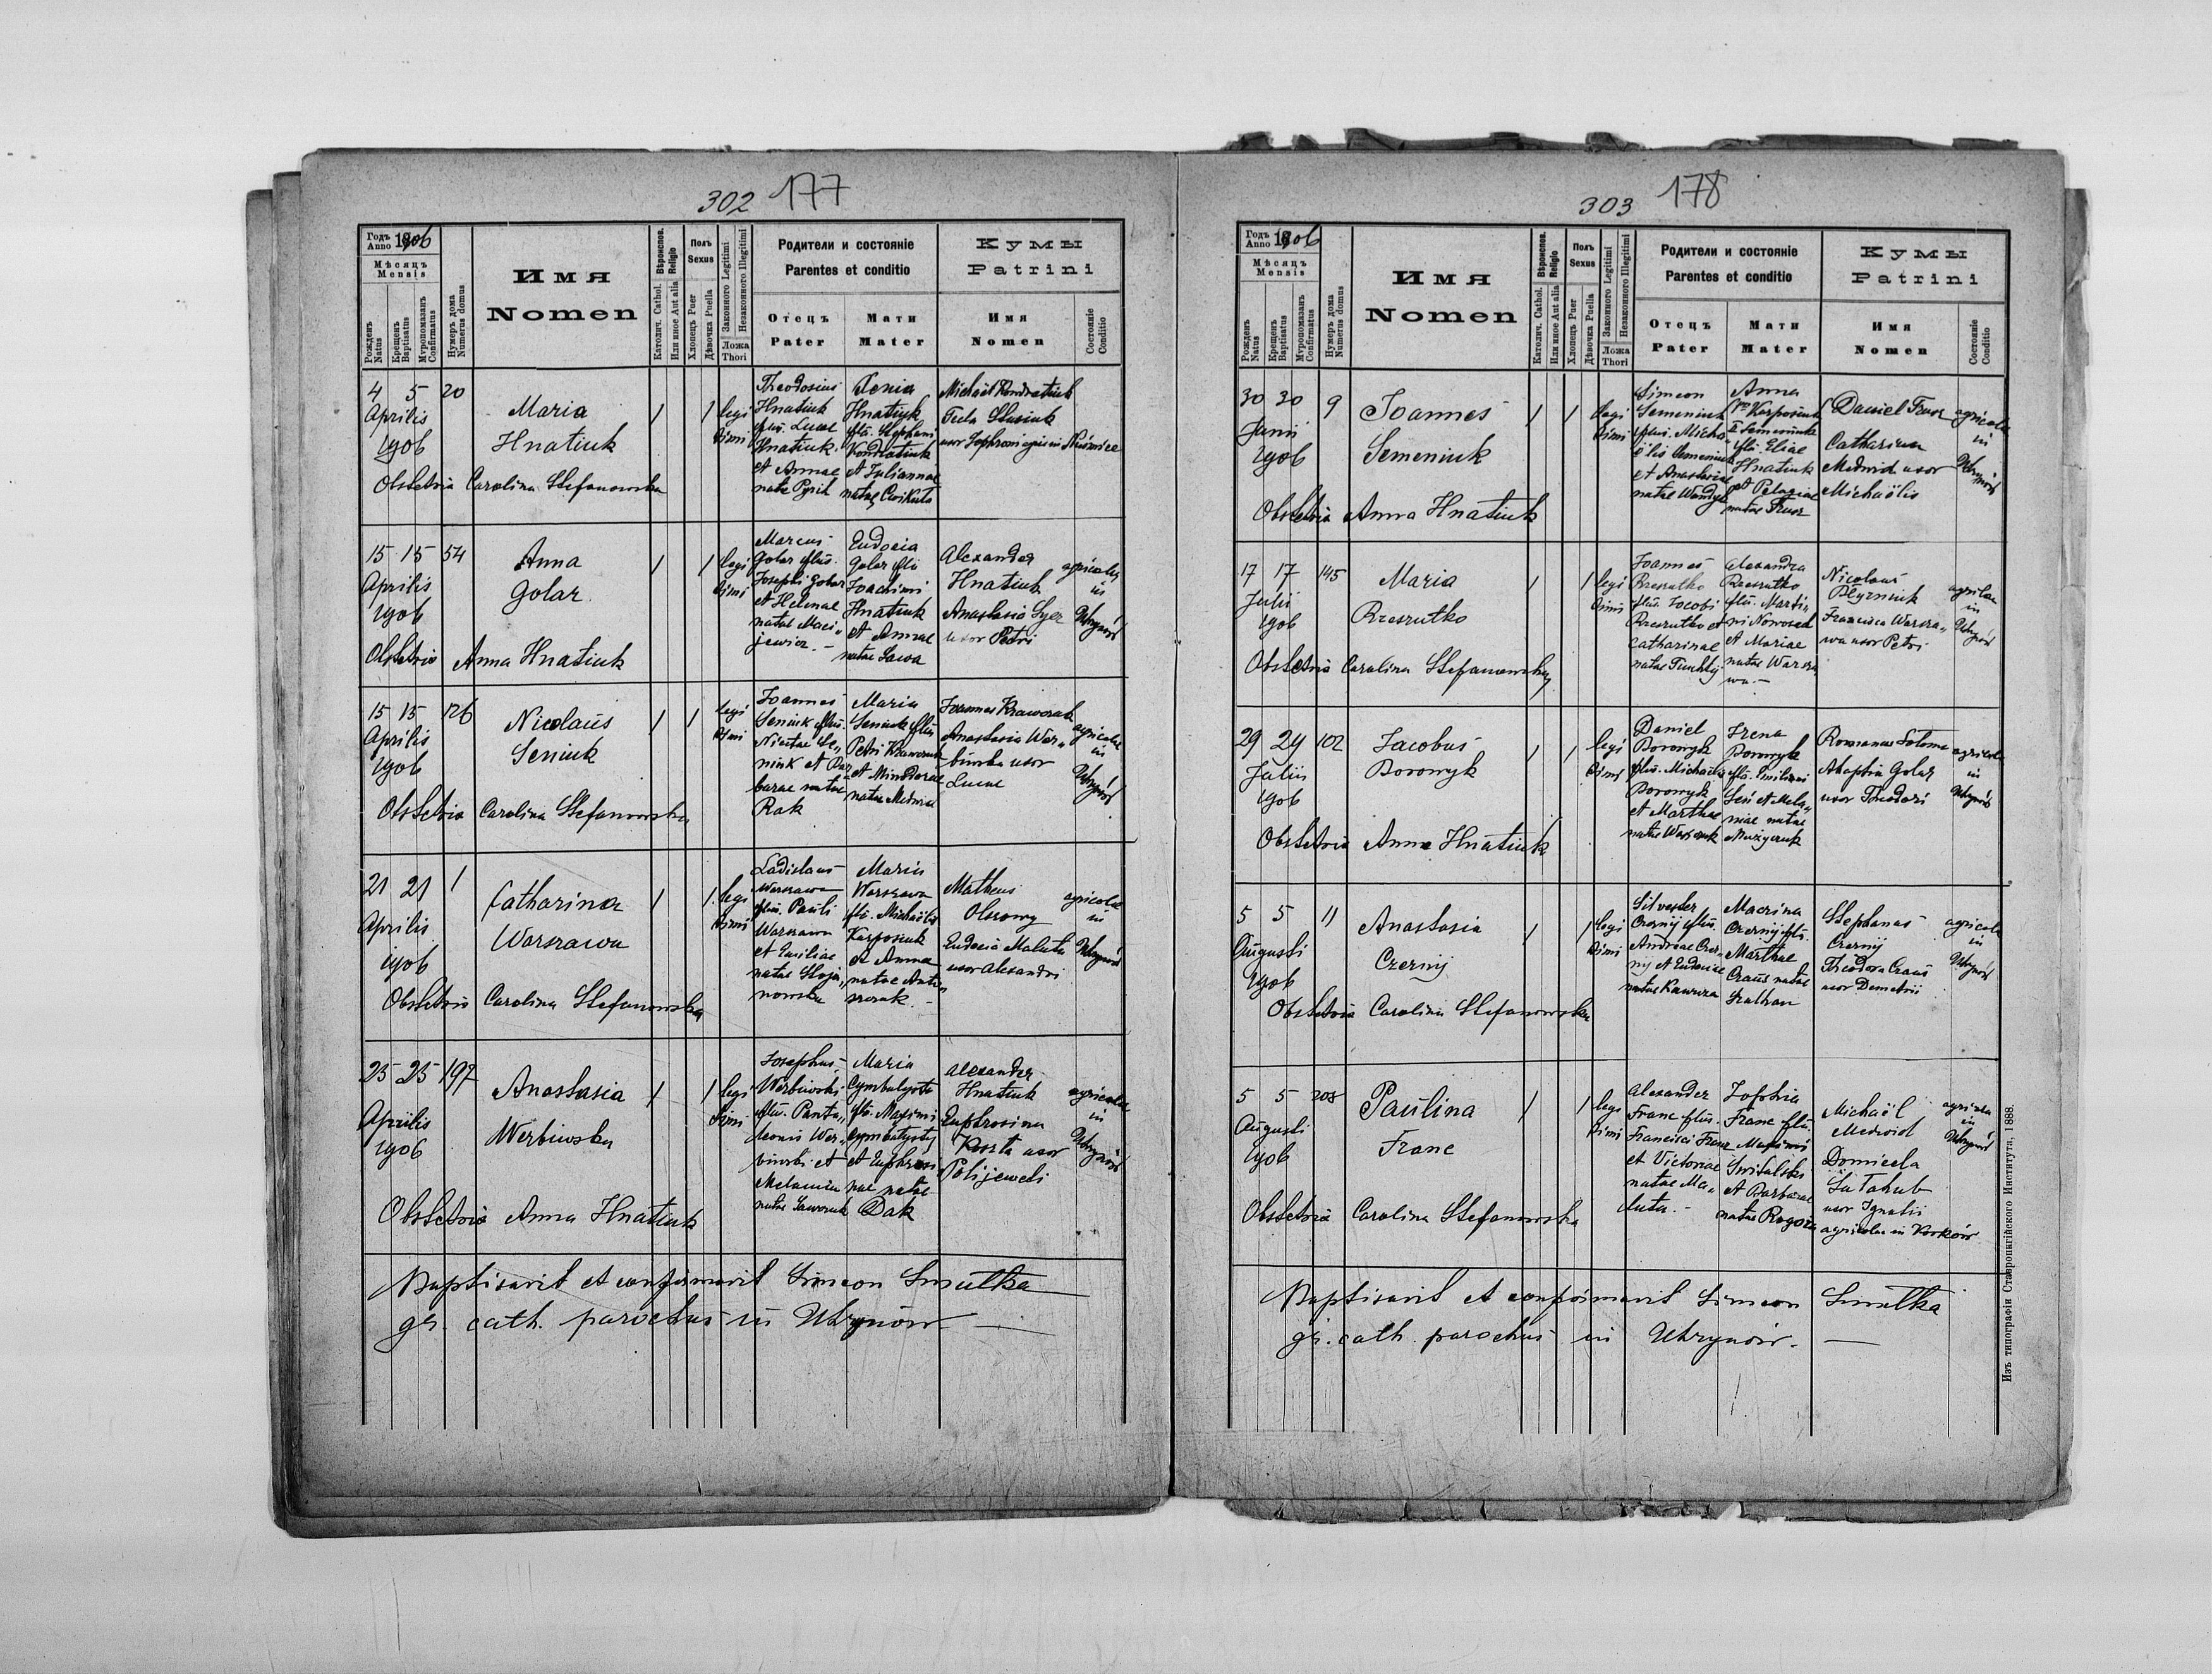 302 177
Годъ Anno 1906
Мѣсяцъ
Mensis
Рожденъ Natus
Крещенъ Baptisatus
Мѵропомазанъ Confirmatus
Нумеръ дома Numerus domus
Имя
Nomen
Вѣроиспов. Religio
Католич. Cathol.
Или иное Aut alia
Полъ
Sexus
Хлопецъ Puer
Дѣвочка Puella
Законного Legitimi
Незаконного Illegitimi
Ложа
Thori
Родители и состояніе
Parentes et conditio
Отецъ
Pater
Мати
Mater
Кумы
Patrini
Имя
Nomen
Состояніе
Conditio
4 5 20
Aprilis
1906
Maria
Hnatiuk
1 1
legi
timi
Theodosius
Hnatiuk
filius Lucae
Hnatiuk
et Annae
natae Pyrih
Xenia
Hnatiuk
filia Stephani
Kondratiuk
et Juliannae
natae
Michaël Kondratiuk
Tecla
uxor
Obstetrix Carolina Stefanowska
15 15 54
Aprilis
1906
Anna
Golar
1 1
legi
timi
Marcus
Golar filius
Josephi Golar
et Helenae
natae Maci„
jewicz.-
Eudocia
Golar filia
Joachimi
Hnatiuk
et Annae
natae Sawa
Alexander
Hnatiuk
Anastasia
uxor Petri
agricolae
in
Uhrynów
Obstetrix Anna Hnatiuk
15 15 126
Aprilis
1906
Nicolaus
Seniuk
1 1
legi
timi
Joannes
Seniuk filius
Nicetae Se„
niuk et Bar„
barae natae
Rak
Maria
Seniuk filia
Petri Krawczuk
et Minodorae
natae
Joannes Krawczuk
Anastasia Wer„
biwska uxor
Lucae
agricolae
in
Uhrynów
Obstetrix Carolina Stefanowska
21 21 1
Aprilis
1906
Catharina
Warszawa
1 1
legi
timi
Ladislaus
Warszawa
filius Pauli
Warszawa
et Emiliae
natae Stoja„
nowska
Maria
Warszawa
filia Michaëlis
Karposiuk
et Annae
natae
Matheus
Obszowy
Eudocia
uxor Alexandri
agricolae
in
Uhrynów
Obstetrix Carolina Stefanowska
25 25 197
Aprilis
1906
Anastasia
Werbiwska
1 1
legi
timi
Josephus
Werbiwski
filius Panta„
leonis Wer„
biwski et
Melaniae
natae Sawczuk
Maria
Cymbalysta
filia Maximi
Cymbalysty
et Euphrosi
nae natae
Dak
Alexander
Hnatiuk
Euphrosina
Koszta uxor
agricolae
in
Uhrynów
Obstetrix Anna Hnatiuk
Baptisavit et confirmavit Simeon Smulka
gr. cath. parochus in Uhrynów
303 178
Годъ Anno 1906
Мѣсяцъ
Mensis
Рожденъ Natus
Крещенъ Baptisatus
Мѵропомазанъ Confirmatus
Нумеръ дома Numerus domus
Имя
Nomen
Вѣроиспов. Religio
Католич. Cathol.
Или иное Aut alia
Полъ
Sexus
Хлопецъ Puer
Дѣвочка Puella
Законного Legitimi
Незаконного Illegitimi
Ложа
Thori
Родители и состояніе
Parentes et conditio
Отецъ
Pater
Мати
Mater
Кумы
Patrini
Имя
Nomen
Состояніе
Conditio
30 30 9
Junii
1906
Joannes
Semeniuk
1 1
legi
timi
Simeon
Semeniuk
filius Micha„
ëlis Semeniuk
et Anastasiae
natae
Anna
Karposiuk
Semeniuk
filia Eliae
Hnatiuk
et Pelagiae
natae
Daniel
Catharina
Medwid uxor
Michaëlis
agricolae
in
Uhrynów
Obstetrix Anna Hnatiuk
17 17 145
Julii
1906
Maria
Rzeszutko
1 1
legi
timi
Joannes
Rzeszutko
filius Jacobi
Rzeszutko et
Catharinae
natae
Alexandra
Rzeszutko
filia Marti„
ni Nowosad
et Mariae
natae Warsza
wa.-
Nicolaus
Francisca Warsza„
wa uxor Petri
agricolae
in
Uhrynów
Obstetrix Carolina Stefanowska
29 29 102
Julii
1906
Jacobus
Borowyk
1 1
legi
timi
Daniel
Borowyk
filius Michaëlis
Borowyk
et Marthae
natae
Irena
Borowyk
filia
et Mela„
niae natae
Muzyczuk
Romanus Soloma
Ahaphia Golar
uxor Theodori
agricolae
in
Uhrynów
Obstetrix Anna Hnatiuk
5 5 11
Augusti
1906
Anastasia
Czernij
1 1
legi
timi
Silvester
Czernij filius
Andreae Czer„
nij et Eudociae
natae
Macrina
Czernij filia
Marthae
Craus natae
Stephanus
Czernij
Theodora Craus
uxor Demetrii
agricolae
in
Uhrynów
Obstetrix Carolina Stefanowska
5 5 208
Augusti
1906
Paulina
Franc
1 1
legi
timi
Alexander
Franc filius
Francisci Franc
et Victoriae
natae Ma„
luta.-
Zophia
Franc filia
et Barbarae
natae Rogoza
Michaël
Medwid
Domicela
uxor Ignatii
agricolae in
agricola
in
Uhrynów
Obstetrix Carolina Stefanowska
Baptisavit et confirmavit Simeon Smulka
gr. cath. parochus in Uhrynów.
Изъ типографіи Ставропигійского Института, 1888.